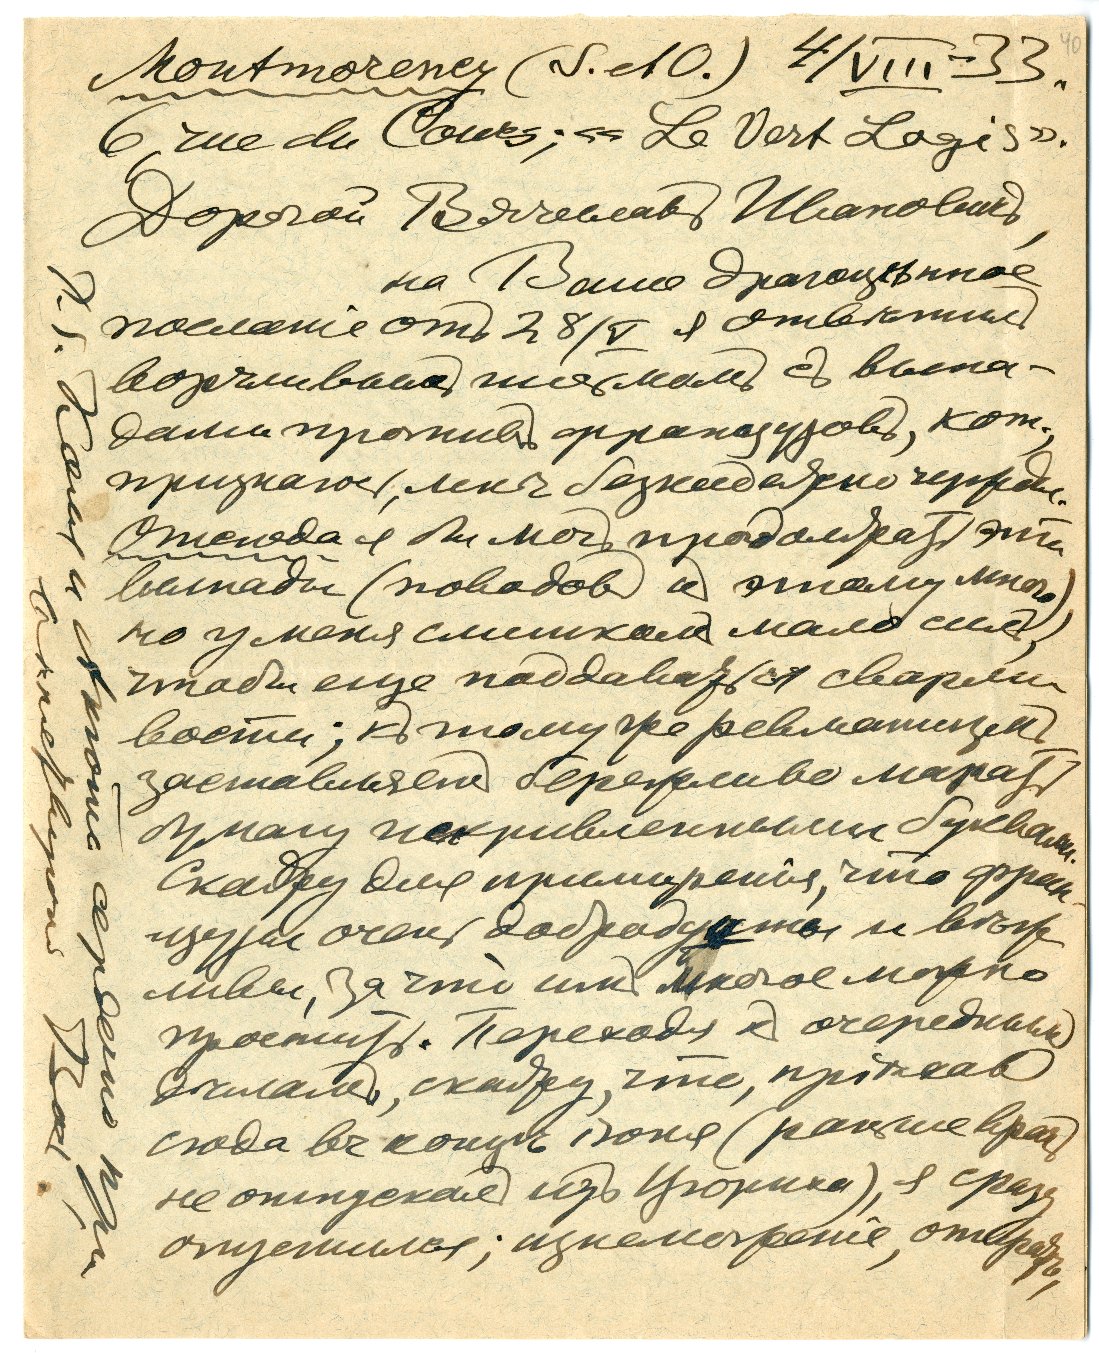 Montmorency (S. et O.) 4/VIII-33.
6, rue du Cours; « Le Vert Logis».
Дорогой Вячеславъ Ивановичъ,
на Ваше драгоцѣнное
посланіе отъ 28/V я отвѣтилъ
ворчливымъ письмомъ съ выпа-
дами противъ французовъ, кот.,
признаюсь, меня безнадежно
Отсюда я бы могъ продолжать эти
выпады (поводовъ къ этому много)
но у меня слишкомъ мало силъ,
чтобы еще поддаваться сварли
вости; къ тому же ревматизмъ
заставляетъ бережливо марать
бумагу искривленными буквами.
Скажу для примиренія, что фран-
цузы очень добродушны и вѣж
ливы, за что имъ многое можно
простить. Переходя къ очереднымъ
дѣламъ, скажу, что, пріѣхавъ
сюда въ концѣ Іюня (раньше врачъ
не отпускалъ изъ Цюриха), я сразу
опустился; изнеможеніе,